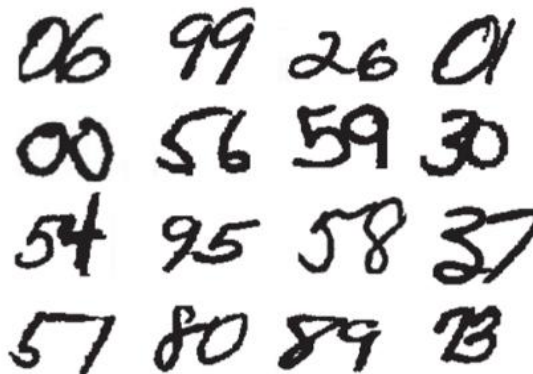 06 99 26 01
00 56 59 30
54 95 58 37
57 80 89 73